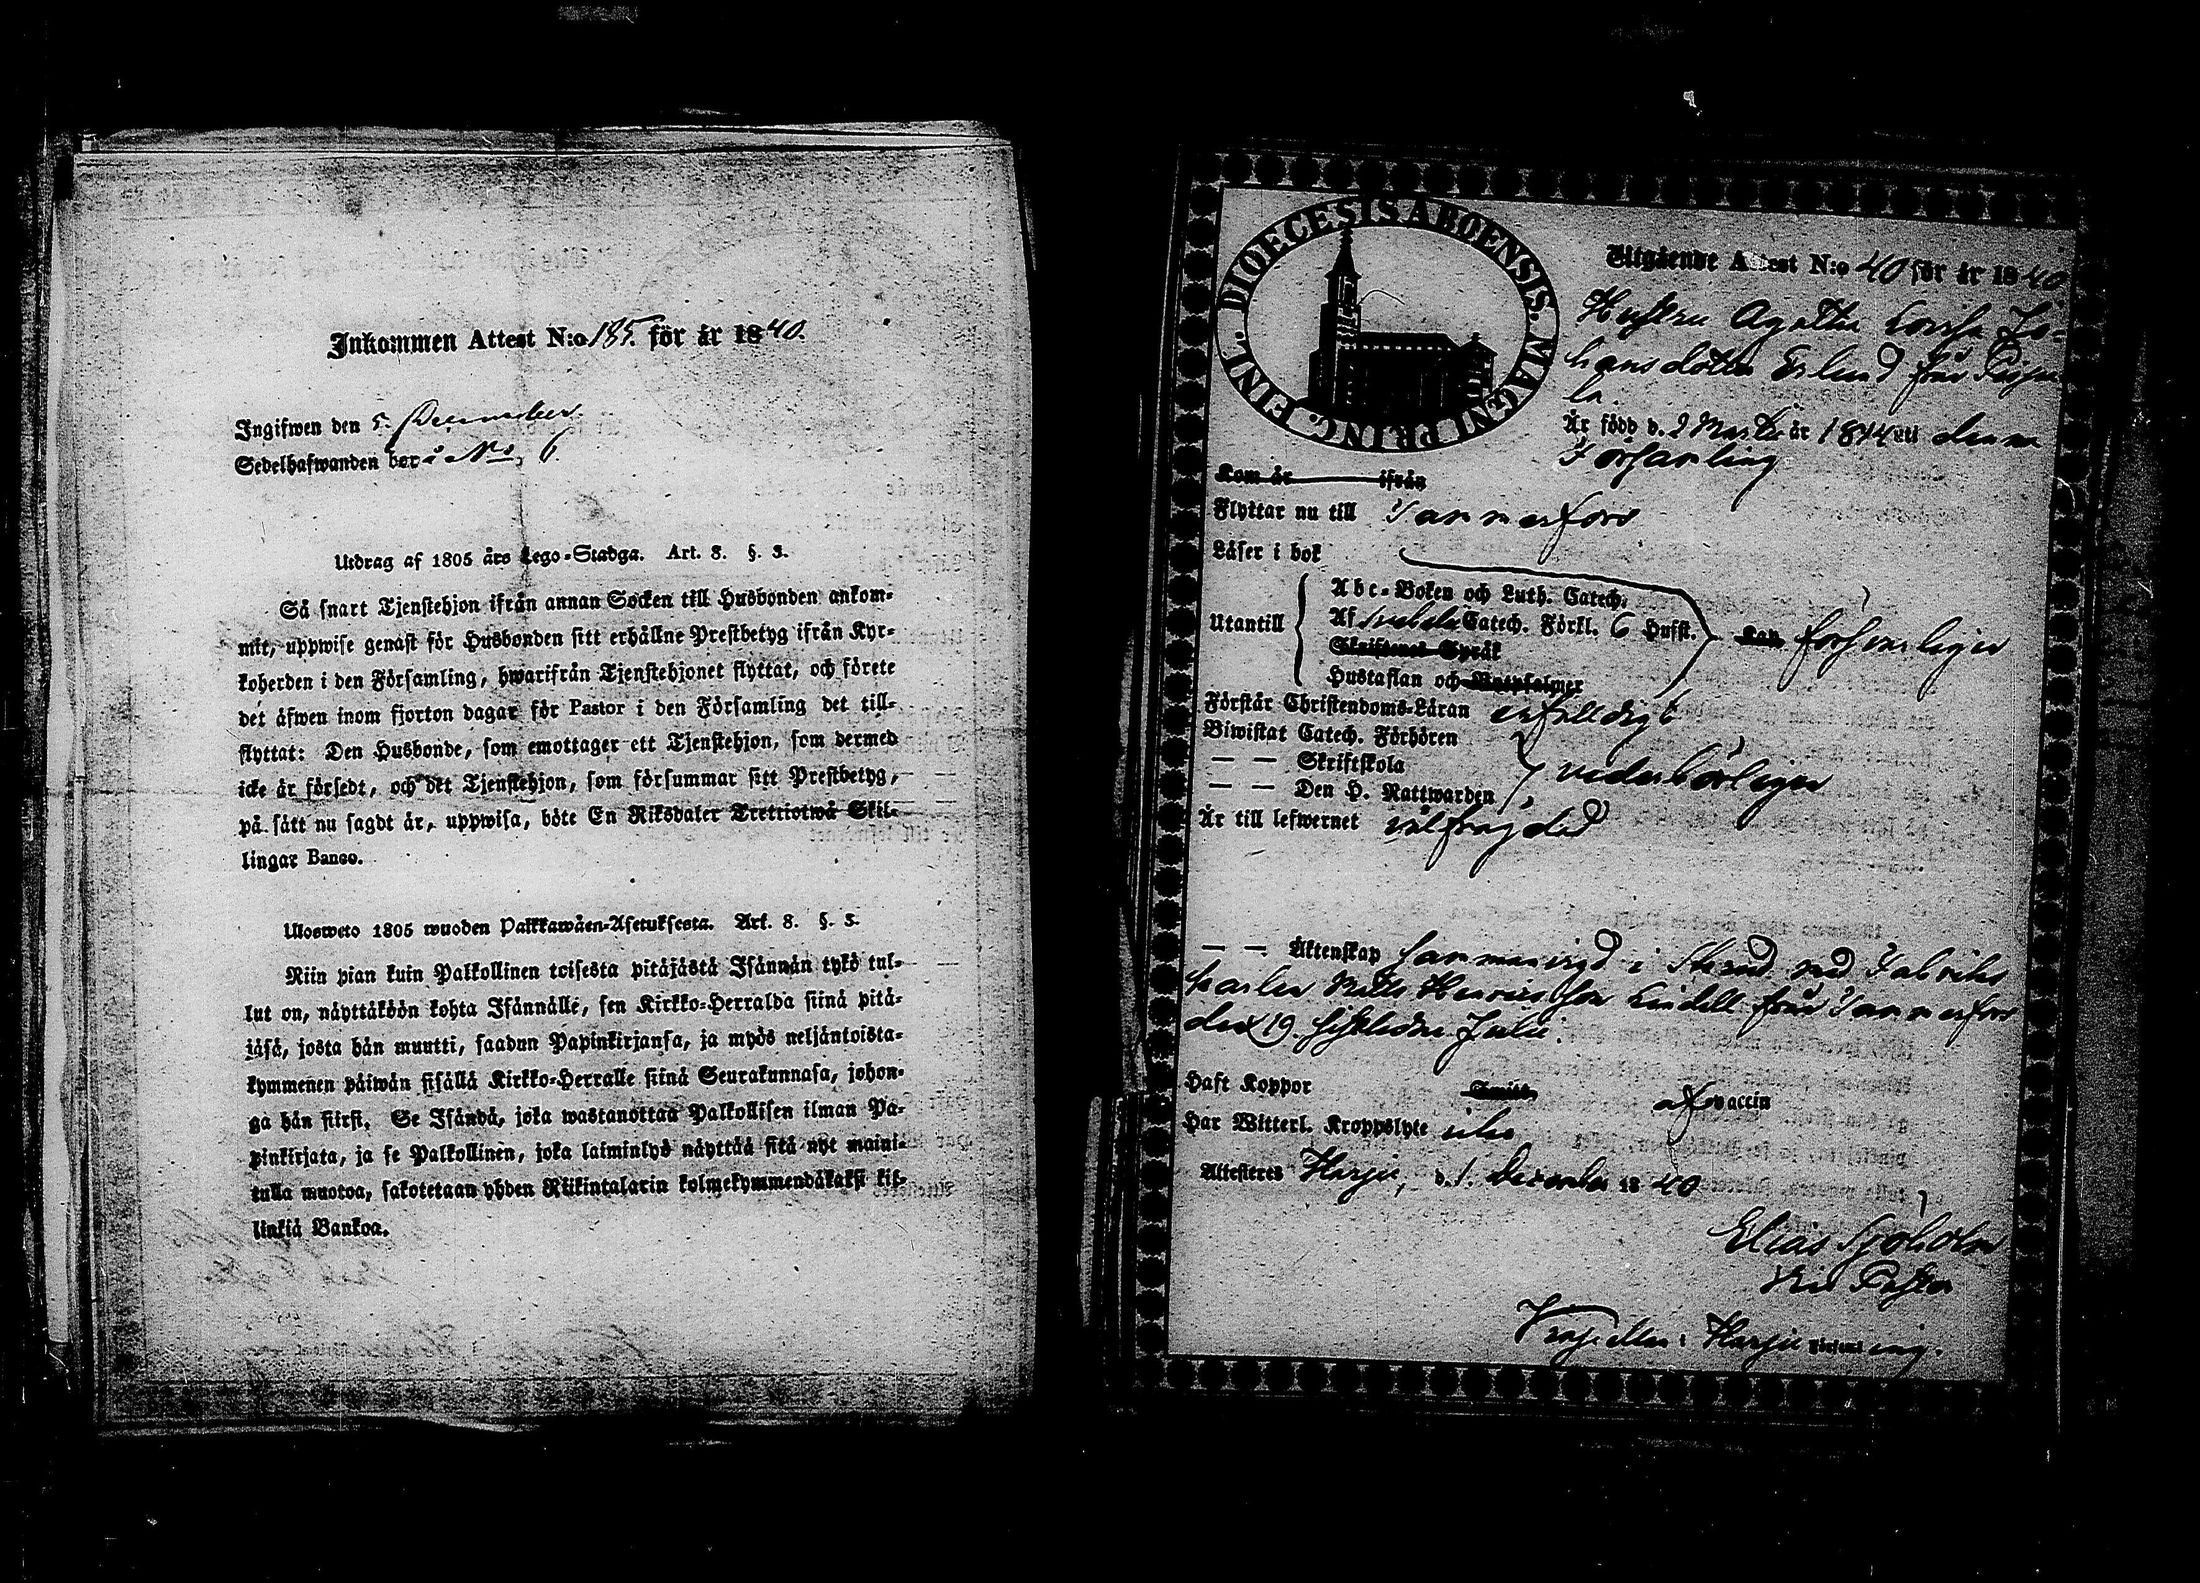 Inkommen Attest N:o 185. för år 1840.
Ingifwen den 5. December.
Sedelhafwanden bor å No. 6.
Utdrag af 1805 års Lego-Stadga. Art. 8. §. 3.
Så snart Tjenstehjon ifrån annan Socken till Husbonden ankom-
mit, uppwise genast för Husbonden sitt erhållne Prestbetyg ifrån Kyr-
koherden i den Församling, hwarifrån Tjenstehjonet flyttat, och förete
det äfwen inom fjorton dagar för Pastor i den Församling det till-
flyttat: Den Husbonde, som emottager ett Tjenstehjon, som dermed
icke är försedt, och det Tjenstehjon, som försummar sitt Prestbetyg,
på sätt nu sagdt är, uppwisa, böte En Riksdaler Trettiotwå Skil-
lingar Banco.
Ulosweto 1805 wuoden Palkkawäen-Asetuksesta. Art. 8. §. 3.
Niin pian kuin Palkollinen toisesta pitäjästä Isännän tykö tul-
lut on, näyttäköön kohta Isännälle, sen Kirkko-Herralda siinä pitä-
jäsä, josta hän muutti, saadun Papinkirjansa, ja myös neljäntoista-
kymmenen päiwän sisällä Kirkko-Herralle siinä Seurakunnasa, johon-
ga hän siirsi. Se Isändä, joka wastanottaa Palkollisen ilman Pa-
pinkirjata, ja se Palkollinen, joka laiminlyö näyttää sitä nyt maini-
tulla muotoa, sakotetaan yhden Riikintalarin kolmekymmendäkaksi kil-
linkiä Bankoa.
DIOECESIS ABOENSIS. MAGNI PRINC. FINL.
Utgående Attest N:o 40 för år 1840
Hustru Agatha Lovisa Jo-
hansdotter Erlund från
Är född d. 2 Martii år 1814 uti denna
Församling
Kom år ifrån
Flyttar nu till Tammerfors
Läser i bok
Abc-Boken och Luth. Catech.
Utantill Af Catech. Förkl. 6 Husst. Lap. försvarligen
Skriftenes Språk
Hustaflan och Botpsalmer
Förstår Christendoms-Läran enfalldigt
Biwistat Catech. Förhören
— — Skriftskola vederbörligen
— — Den H. Nattwarden
Är till lefwernet välfrägdad
— — Äktenskap sammanvigd i Strand med Fabriks
karlen Matts Henricsson Lindell från Tammerfors
den 19. sistledne Julii.
Haft Koppor af vaccin
Har Witterl. Kroppslyte icke
Attesteres Harju, d. 1. December 1840
Elias Sjöholm
Vice Pastor
i Harju Församling.